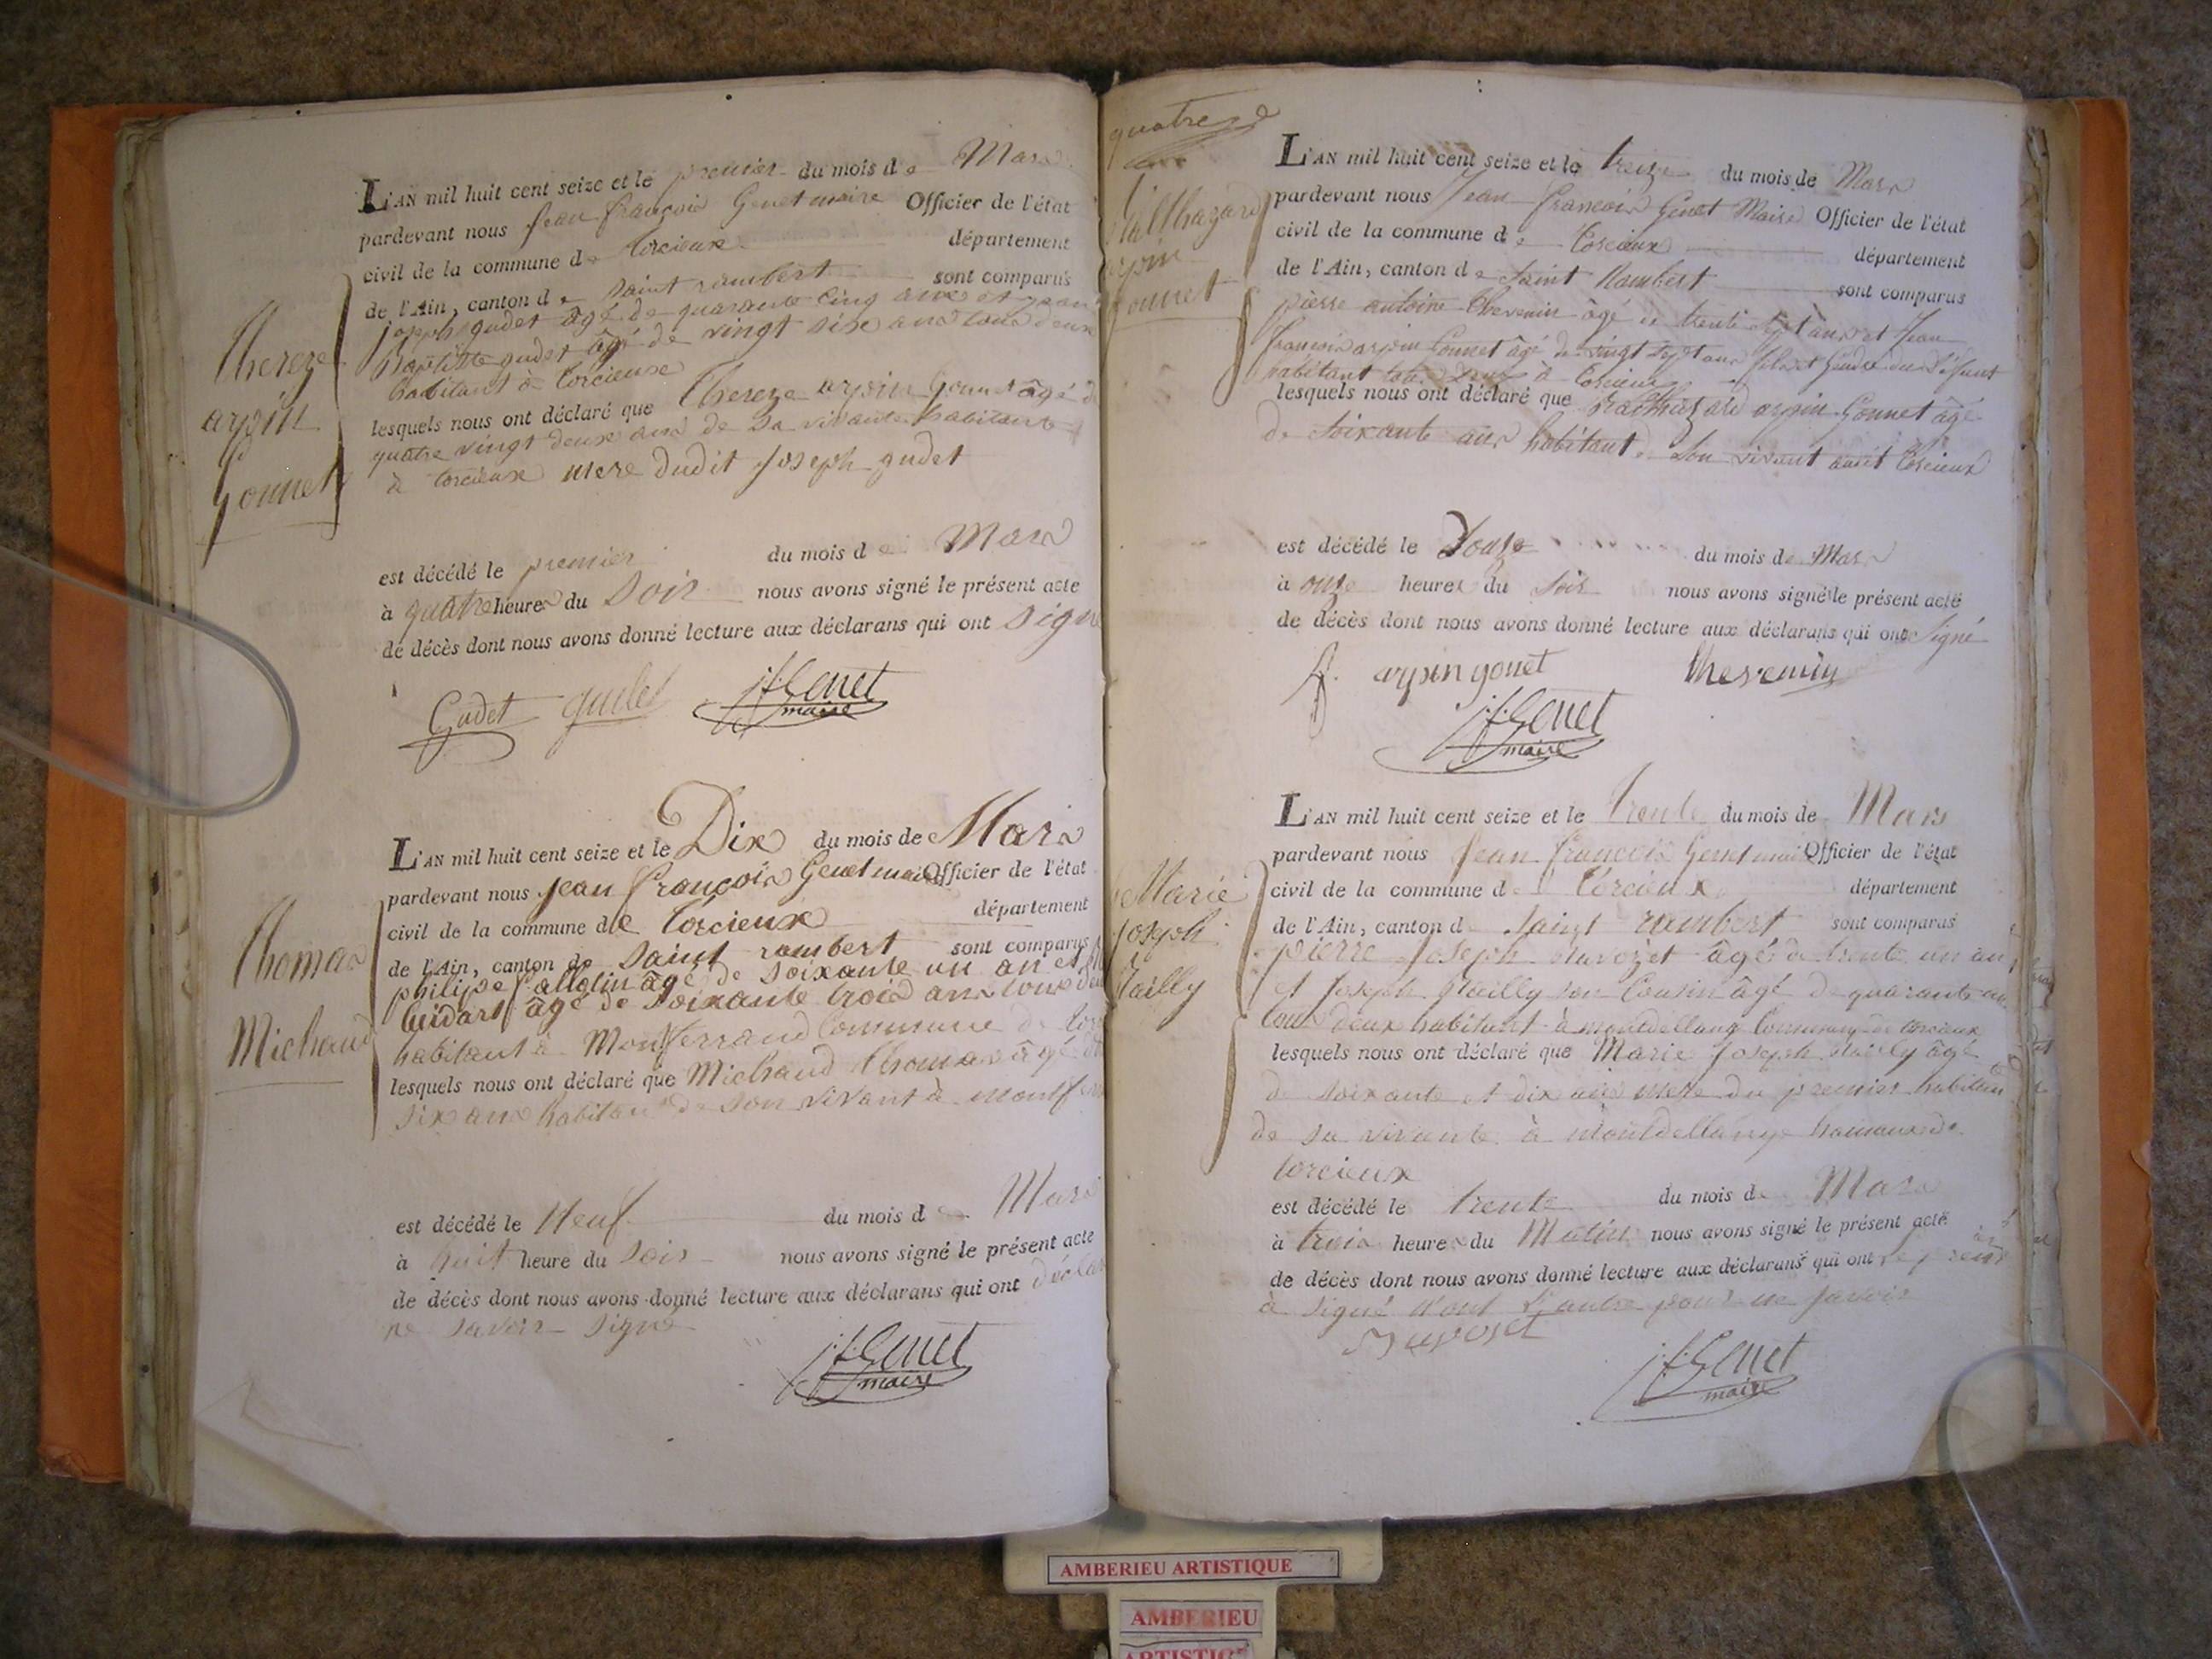 Thereze
arpin
Gonnet
L'AN mil huit cent seize et le premier du mois de Mars
pardevant nous Jean françois Genet maire Officier de l'état
civil de la commune de Torcieux département
de l'Ain, canton de Saint rambert sont comparus
joseph gudet âgé de quarante cinq ans et jean
baptiste gudet âgé de vingt sixe ans tous deux
habitant à Torcieux
lesquels nous ont déclaré que Thereze arpin Gonnet âgé de
quatre vingt deux ans de sa vivante habitante
à torcieux mere dudit Joseph gudet
est décédé le premier du mois de Mars
à quatre heures du Soir nous avons signé le présent acte
de décès dont nous avons donné lecture aux déclarans qui ont signé
Gudet gudet j. f. Genet
maire
Thomas
Michaud
L'AN mil huit cent seize et le Dix du mois de Mars
pardevant nous Jean françois Genet maire Officier de l'état
civil de la commune de Torcieux département
de l'Ain, canton de Saint rambert sont comparus
philipe âgé de soixante un an et
âgé de soixante trois ans tous deux
habitant à Montferrand Commune de
lesquels nous ont déclaré que Michaud Thomas âgé
six ans habitant de son vivant à
est décédé le Neuf du mois de Mars
à huit heure du Soir nous avons signé le présent acte
de décès dont nous avons donné lecture aux déclarans qui ont
ne savoir signé
j. f. Genet
maire
quatre
Balthazard
arpin
Gonnet
L'AN mil huit cent seize et le treize du mois de Mars
pardevant nous Jean francois Genet Maire Officier de l'état
civil de la commune de Torcieux département
de l'Ain, canton de Saint Rambert sont comparus
pierre antoine Thevenin âgé de trente sept ans et Jean
francois arpin Gonnet âgé de vingt sept ans fils et Gendre du défunt
habitant tous deux à Torcieux
lesquels nous ont déclaré que Balthazard arpin Gonnet âgé
de soixante ans habitant son vivant audit Torcieux
est décédé le Douze du mois de Mars
à onze heures du Soir nous avons signé le présent acte
de décès dont nous avons donné lecture aux déclarans qui ont Signé
f. arpin gonet thevenin
j. f. Genet
maire
Marie
Joseph
L'AN mil huit cent seize et le trente du mois de Mars
pardevant nous Jean francois Genet maire Officier de l'état
civil de la commune de Torcieux département
de l'Ain, canton de Saint rambert sont comparus
pierre Joseph âgé de trente un an
et Joseph son Cousin âgé de quarante
tous deux habitant à Commune de torcieux
lesquels nous ont déclaré que Marie Joseph âgé
de soixante et dix ans mere du premier habitant
de sa vivante à hamaux de
torcieux
est décédé le trente du mois de Mars
à trois heures du Matin nous avons signé le présent acte
de décès dont nous avons donné lecture aux déclarans qui ont
à signé l'autre pour ne savoir
j. f. Genet
maire
AMBERIEU ARTISTIQUE
AMBERIEU